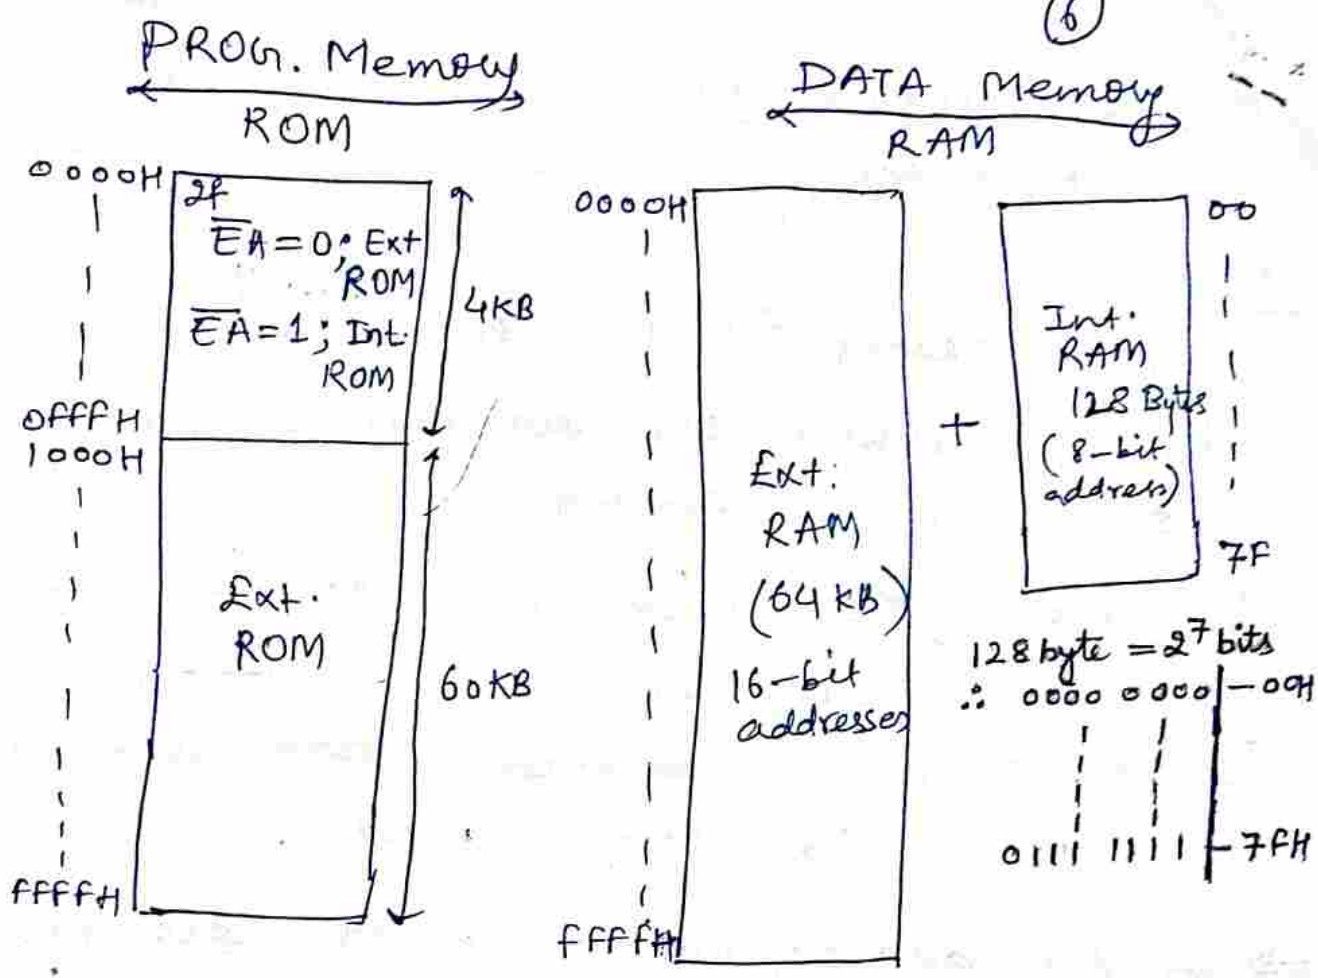 6
PROG. Memory
ROM
0000H
If
E̅A̅=0; Ext
ROM
E̅A̅=1; Int.
ROM
4KB
0fffH
1000H
Ext.
ROM
60KB
ffffH
DATA Memory
RAM
0000H
Ext.
RAM
(64 KB)
16-bit
addresses
ffffH
+
00
Int.
RAM
128 Bytes
(8-bit
address)
7F
128 byte = 2⁷ bits
∴ 0000 0000 - 00H
0111 1111 - 7FH